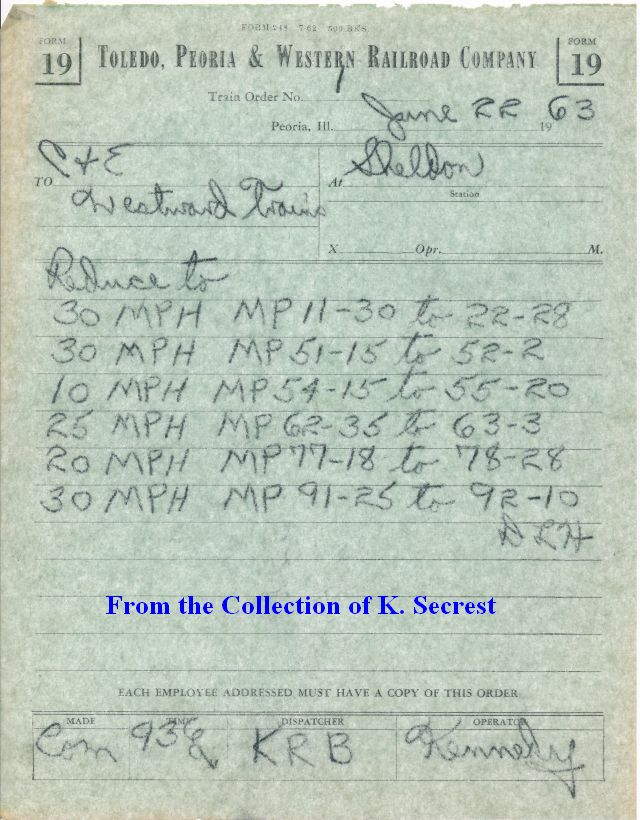 FORM 248 7-62 500 BKS
FORM 19 TOLEDO, PEORIA & WESTERN RAILROAD COMPANY FORM 19
Train Order No. 1
Peoria, Ill. June 22 1963
TO C & E
Westward Trains
At Sheldon
Station
X Opr. M.
Reduce to
30 MPH MP 11-30 to 22-28
30 MPH MP 51-15 to 52-2
10 MPH MP 54-15 to 55-20
25 MPH MP 62-35 to 63-3
20 MPH MP 77-18 to 78-28
30 MPH MP 91-25 to 92-10
From the Collection of K. Secrest
EACH EMPLOYEE ADDRESSED MUST HAVE A COPY OF THIS ORDER
MADE TIME DISPATCHER OPERATOR
Com KRB Kennedy